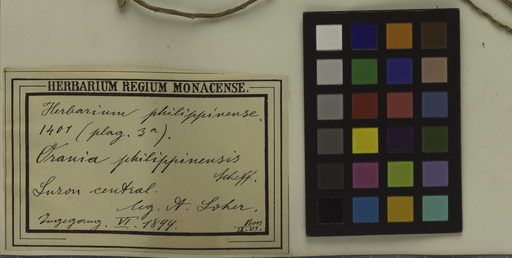 HERBARIUM REGIUM MONACENSE.
Herbarium philippinense.
1401 (plag. 3a).
Orania philippinensis
Scheff.
Luzon central.
leg. A. Loher.
VI. 1899.
IX. 03.